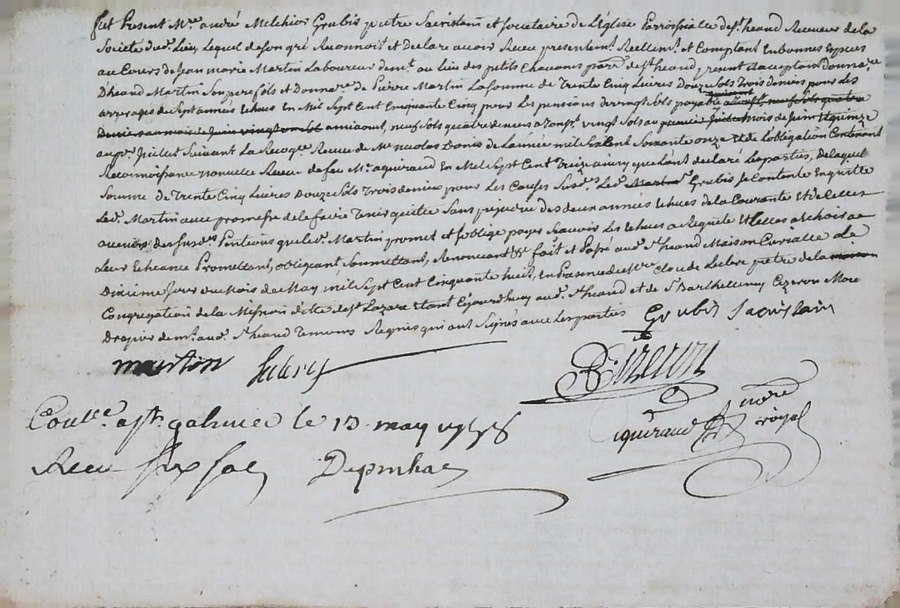 fut Present Mre andré Melchior Grubis prêtre Sacristain et societaire de L'église Parroissialle de st heand Receveur de la
Societé dud. Lieu Lequel de son gré Reconnoit et declare avoir Receu presentemt. Reellemt. et Comptant En bonnes Especes
au Cours de Jean marie Martin Laboureur demt. au lieu des petits Chavanes parre. de st heand, present et acceptant donnare.
D'heand Martin Son pere fils et Donnare. de Pierre Martin La Somme de Trente Cinq Livres Douze Sols Trois deniers pour des
arrerages de Sept années Echues En Mil Sept Cent Cinquante Cinq pour Les pensions de vingt Sols payable
neuf Sols quatre deniers vingt Sols au mois de Juin et quinze
au pr. Juillet Suivant La Recogce. Receue de Me nicolas Donis de L'année mil Six Cent Soixante onze et de L'obligation Contenant
Reconnoissance nouvelle Receue de feu Me. aquiraud En Mil Sept Cent Treize ainsy que L'ont declaré Les parties, de Laquel
Somme de Trente Cinq Livres Douze Sols Trois deniers pour Les Causes Susd. Led. Grubis Se Contente En quitte
Led. Martin avec promesse de Le faire Tenir quitte Sans prejudice des deux années Echues de La Courante Et de Celles
a venir des Susd. Pentions que Led. Martin promet et S'oblige payer Scavoir Les Echues a Requete Et Celles a Echoir a
Leur Echeance Promettant, obligeant, Soumettant, Renoncant &c fait et Passé aud. St heand Maison Curialle Le
Dixieme Jour du Mois de May mil Sept Cent Cinquante huit, En Presence de Mre Claude Lebre prêtre de La
Congregation de la Mission dite de st Lazare Etant Ce jourdhuy aud. St heand et de Sr Barthellemy Cizeron Mare
Drapier demt. aud. St heand Temoins Requis qui ont Signés avec Les parties Grubis Sacristain
martin Lebre
B Cizeron
Conlle. a st. galmier le 13 may 1758
aquiraud nore royal
Receu Six Sols Depinhac